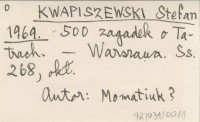 0
KWAPISZEWSKI Stefan
1969. - 500 zagadek o Ta-
trach. — Warszawa. Ss.
268, okł.
Autor: Momatiuk?